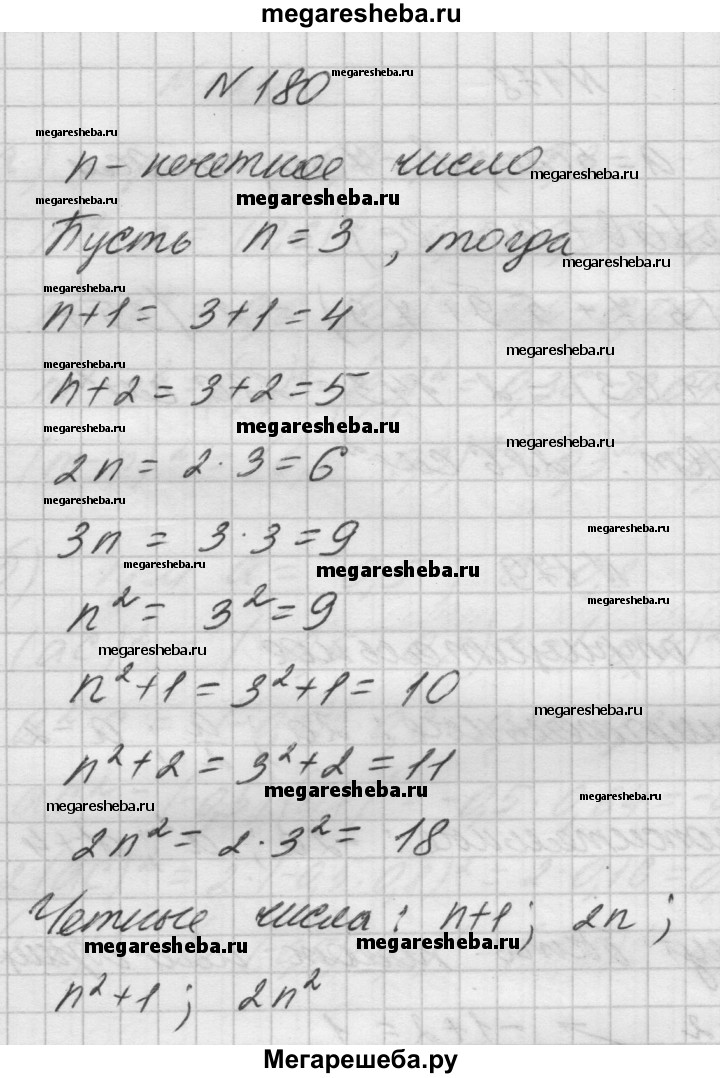 megaresheba.ru
N 180 megaresheba.ru
megaresheba.ru
n - нечетное число megaresheba.ru
megaresheba.ru megaresheba.ru
Пусть n = 3, тогда megaresheba.ru
megaresheba.ru
n+1 = 3+1 = 4
megaresheba.ru megaresheba.ru
n+2 = 3+2 = 5
megaresheba.ru megaresheba.ru megaresheba.ru
2n = 2·3 = 6
megaresheba.ru
3n = 3·3 = 9 megaresheba.ru
megaresheba.ru megaresheba.ru
n² = 3² = 9 megaresheba.ru
megaresheba.ru
n²+1 = 3²+1 = 10
megaresheba.ru
n²+2 = 3²+2 = 11
megaresheba.ru
megaresheba.ru megaresheba.ru
2n² = 2·3² = 18
Четные числа: n+1; 2n;
megaresheba.ru megaresheba.ru
n²+1; 2n²
Мегарешеба.ру